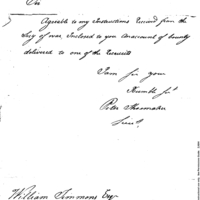 Sir
Agreable to my Instructions Received from the
Secy of war, Inclosed to you an account of bounty
delivered to one of the Recruits
I am Sir your
Humble Sert
Peter Shoemaker
Lieut.
William Simmons Esqr